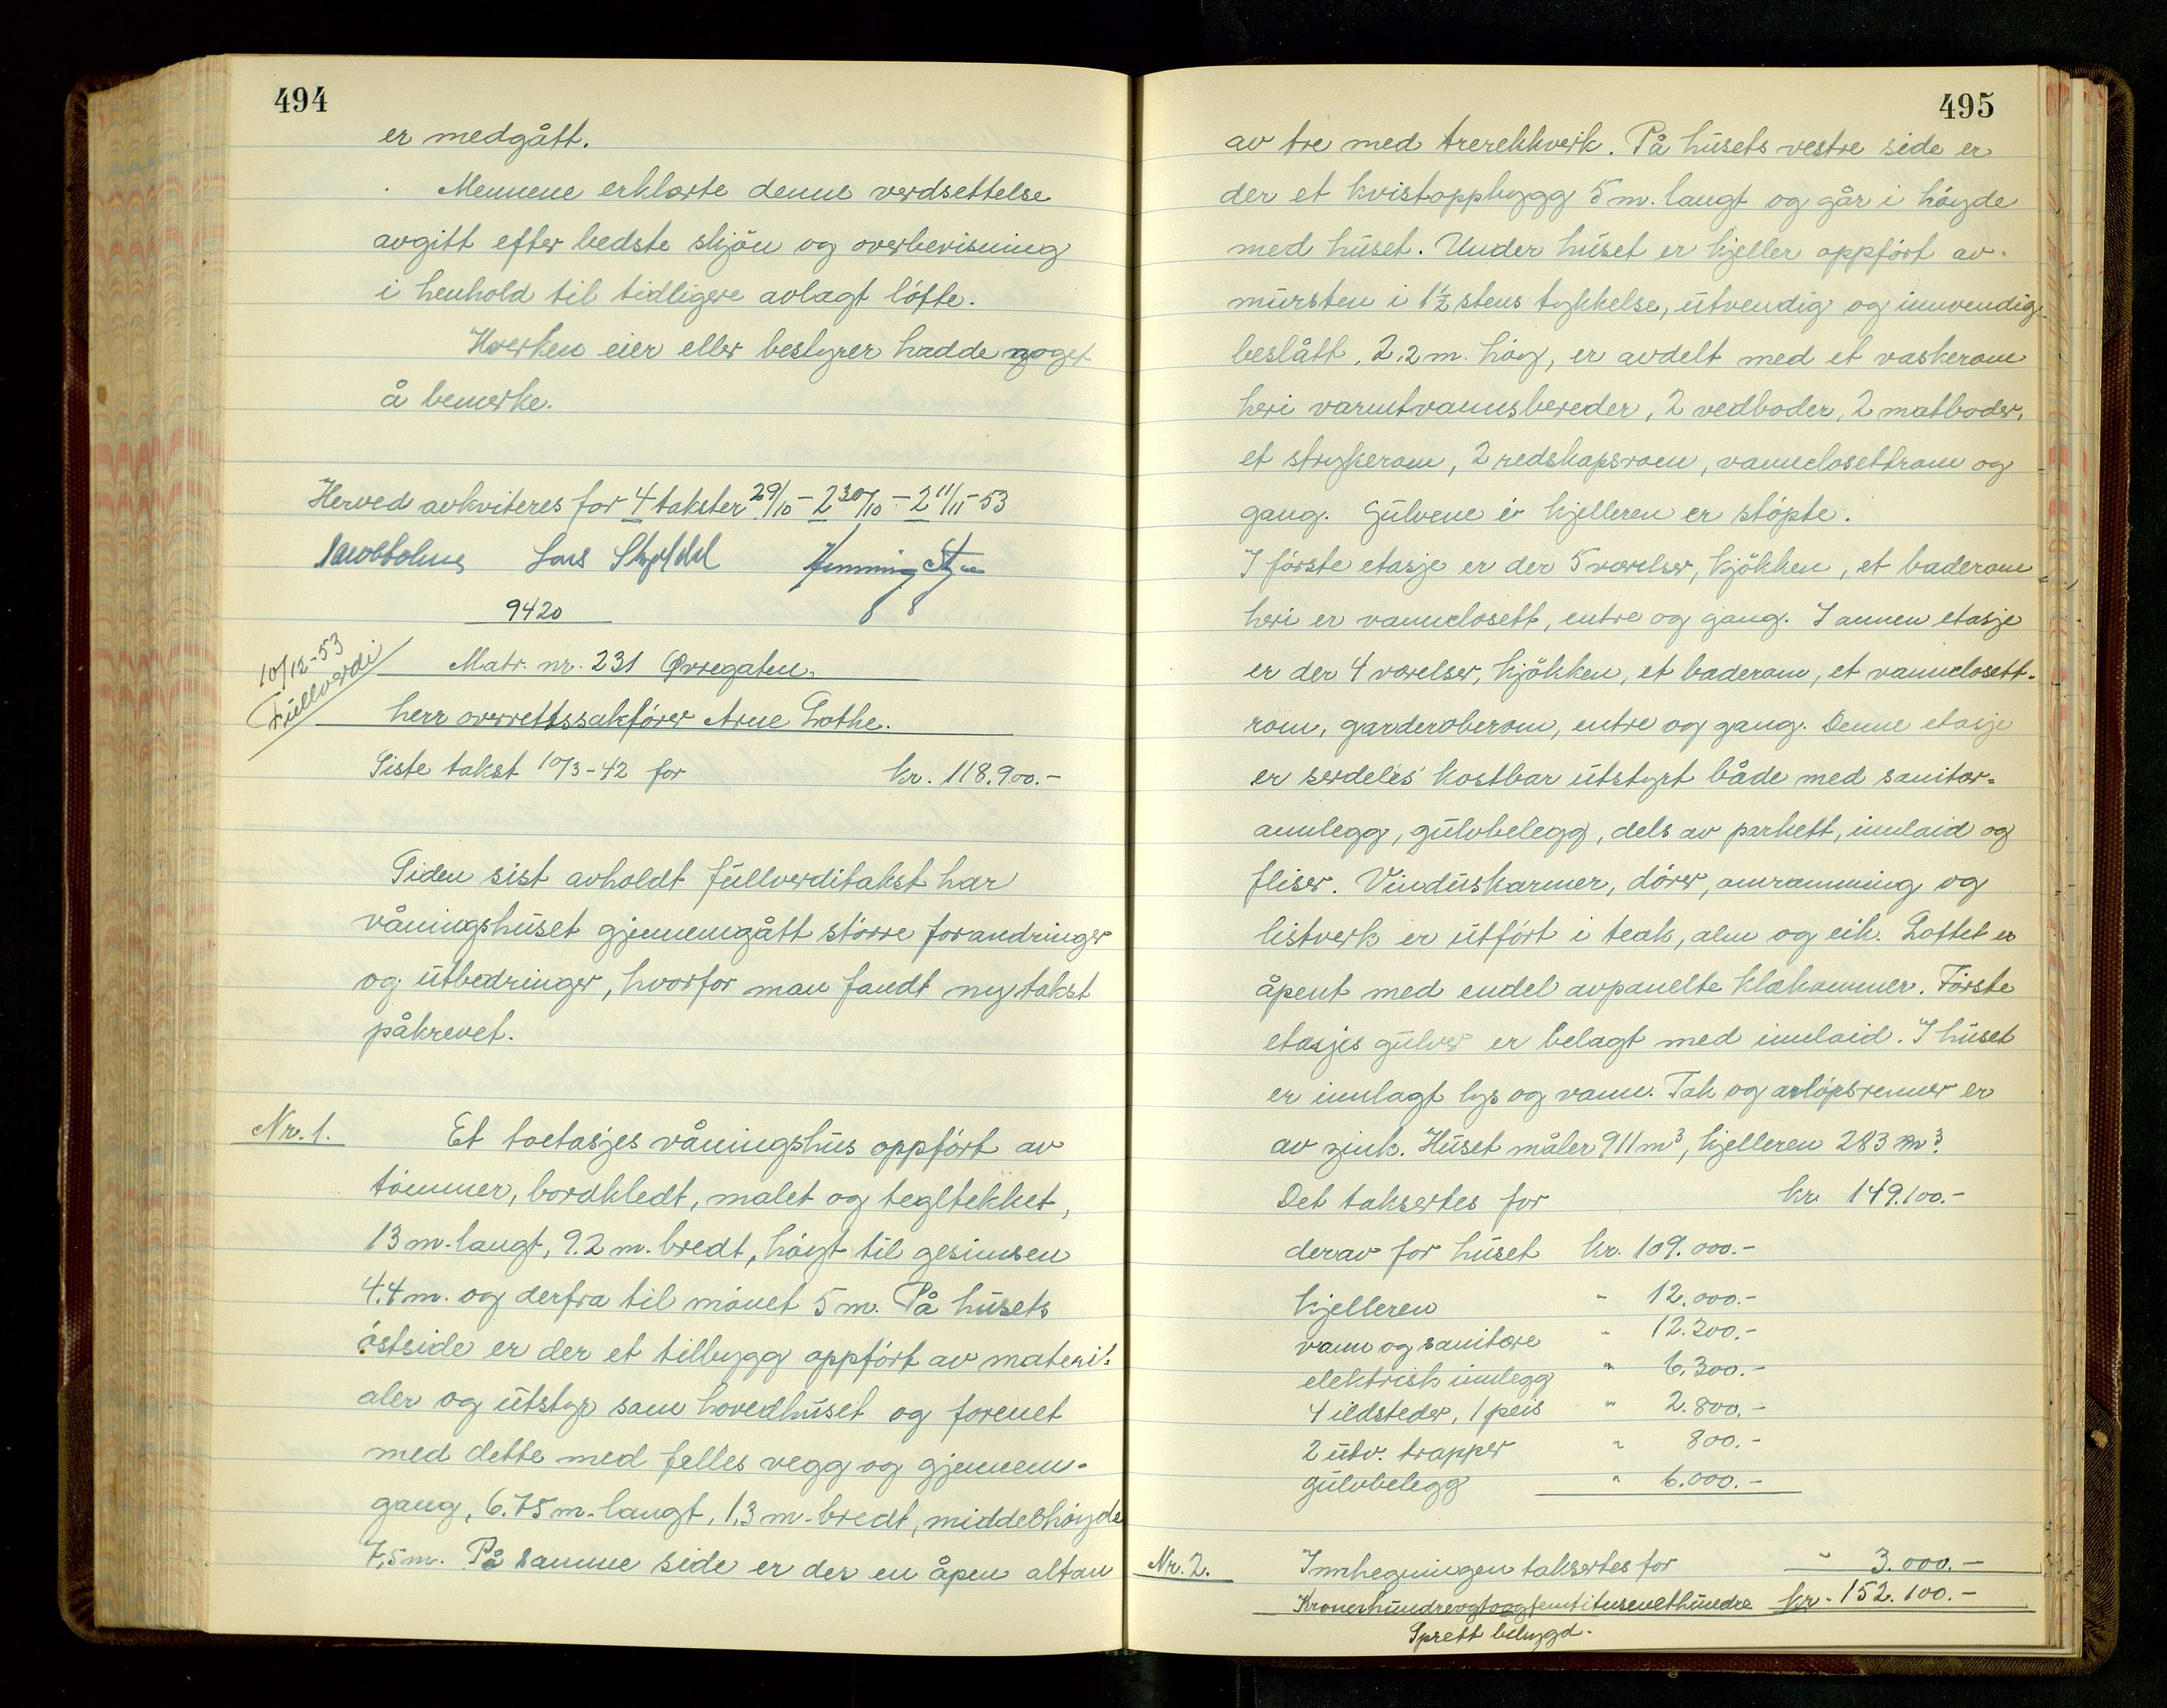 494
er medgått.
Mennene erklærte denne verdsettelse
avgitt efter bedste skjön og overbevisning
i henhold til tidligere avlagt löfte.
Hverken eier eller bestyrer hadde noget
å bemerke.
Herved avkviteres for 4 takster 29/10 - 2 30/10 - 2 11/11-53
Lars
Henning
9420
10/12-53
Fullverdi
Matr. nr. 231 Øvregaten,
herr overrettssakförer Arne Lothe.
Siste takst 10/3-42 for kr. 118.900.-
Siden sist avholdt fullverditakst har
våningshuset gjennemgått större forandringer
og utbedringer, hvorfor man fandt ny takst
påkrevet.
Nr. 1. Et toetasjes våningshus oppfört av
tömmer, bordkledt, malet og tegltekket,
13 m. langt, 9.2 m. bredt, höyt til gesimsen
4.4 m. og derfra til mönet 5 m. På husets
östside er der et tilbygg oppfört av materi-
aler og utstyr som hovedhuset og forenet
med dette med felles vegg og gjennem-
gang, 6.75 m. langt, 1,3 m. bredt, middelshöyde
7,5 m. På samme side er der en åpen altan
495
av tre med trerekkverk. På husets vestre side er
der et kvistoppbygg 5 m. langt og går i höyde
med huset. Under huset er kjeller oppfört av
mursten i 1½ stens tykkelse, utvendig og innvendig
beslått, 2,2 m. höy, er avdelt med et vaskerom
heri varmtvannsbereder, 2 vedboder, 2 matboder,
et strykerom, 2 redskapsrom, vannclosettrom og
gang. Gulvene i kjelleren er stöpte.
I förste etasje er der 5 værelser, kjökken, et baderom
heri er vannclosett, entre og gang. I annen etasje
er der 4 værelser, kjökken, et baderom, et vannclosett-
rom, garderoberom, entre og gang. Denne etasje
er serdeles kostbar utstyrt både med sanitær-
annlegg, gulvbelegg, dels av parkett, innlaid og
fliser. Vinduskarmer, dörer, omramming og
listverk er utfört i teak, alm og eik. Loftet er
åpent med endel avpanelte klækammer. Förste
etasjes gulver er belagt med innlaid. I huset
er innlagt lys og vann. Tak og avlöpsrenner er
av zink. Huset måler 911 m³, kjelleren 283 m³.
Det takseres for kr. 149.100.-
derav for huset kr. 109.000.-
kjelleren " 12.000.-
vann og sanitære " 12.200.-
elektrisk innlegg " 6.300.-
4 ildsteder, 1 peis " 2.800.-
2 utv. trapper " 800.-
gulvbelegg " 6.000.-
Nr. 2. Innhegningen takseres for " 3.000.-
Kronerhundreogtoogfemtitusenethundre kr. 152.100.-
Sprett bebygd.